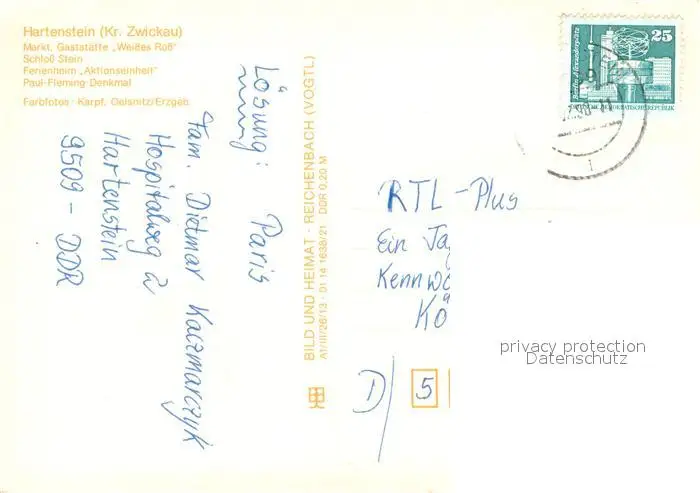 Hartenstein (Kr. Zwickau)
Markt, Gaststätte „Weißes Roß"
Schloß Stein
Ferienheim „Aktionseinheit"
Paul-Fleming-Denkmal
Farbfotos: Karpf, Oelsnitz/Erzgeb.
Lösung: Paris
Fam. Dietmar Kaczmarczyk
Hospitalweg 2
Hartenstein
9509 - DDR
BILD UND HEIMAT · REICHENBACH (VOGTL)
A1/III/26/13 · 01 14 1638/21 DDR 0,20 M
25
Berlin, Alexanderplatz
DEMOKRATISCHE REPUBLIK
RTL - Plus
Ein
Kennwo
Kö
D/ 5
privacy protection
Datenschutz